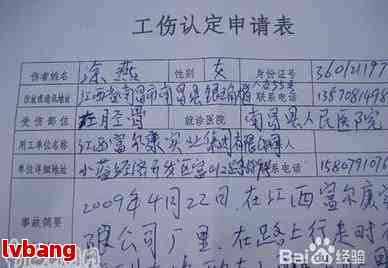 工伤认定申请表
伤者姓名 涂燕 性别 女 身份证号 360121197
住址或通讯地址 江西省南昌市南昌县银 联系电话 1357081498
受伤部位 左胫骨 就诊医院 南昌县人民医院
用工单位名称 江西富尔康实业集团有限公司
单位详细地址 小蓝经济开发区富山 路 联系电话 1580791016
2009年4月22日,在江西富尔康实
事故简要
限公司厂里,在路上行走时
lvbang
Bai 百度经验